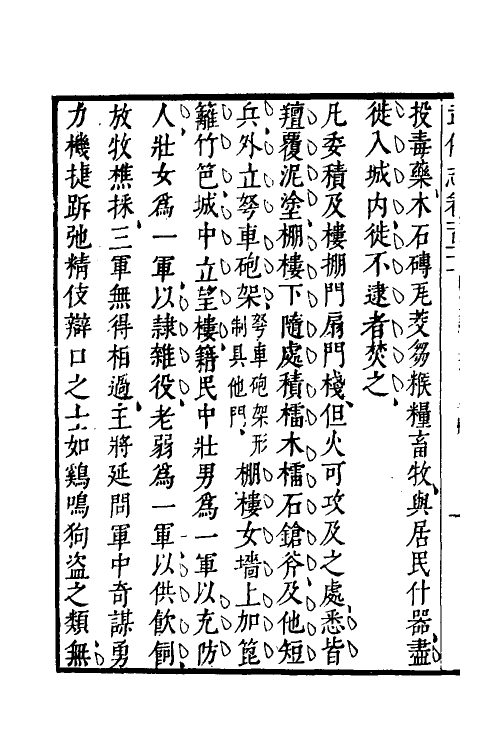 投毒藥木石磚瓦茭芻糇糧畜牧與居民什器盡
徙入城内徙不逮者焚之
凡委積及樓棚門扇門棧但火可攻及之處悉皆
氊覆泥塗棚樓下隨處積檑木檑石鎗斧及他短
兵外立弩車砲架弩車砲架形制具他門棚樓女墻上加篦
籬竹笆城中立望樓籍民中壯男爲一軍以充防
人壯女爲一軍以隷雜役老弱爲一軍以供飲飼
放牧樵採三軍無得相過主將延問軍中奇謀勇
力機捷跅弛精伎辯口之士如鷄鳴狗盜之類無